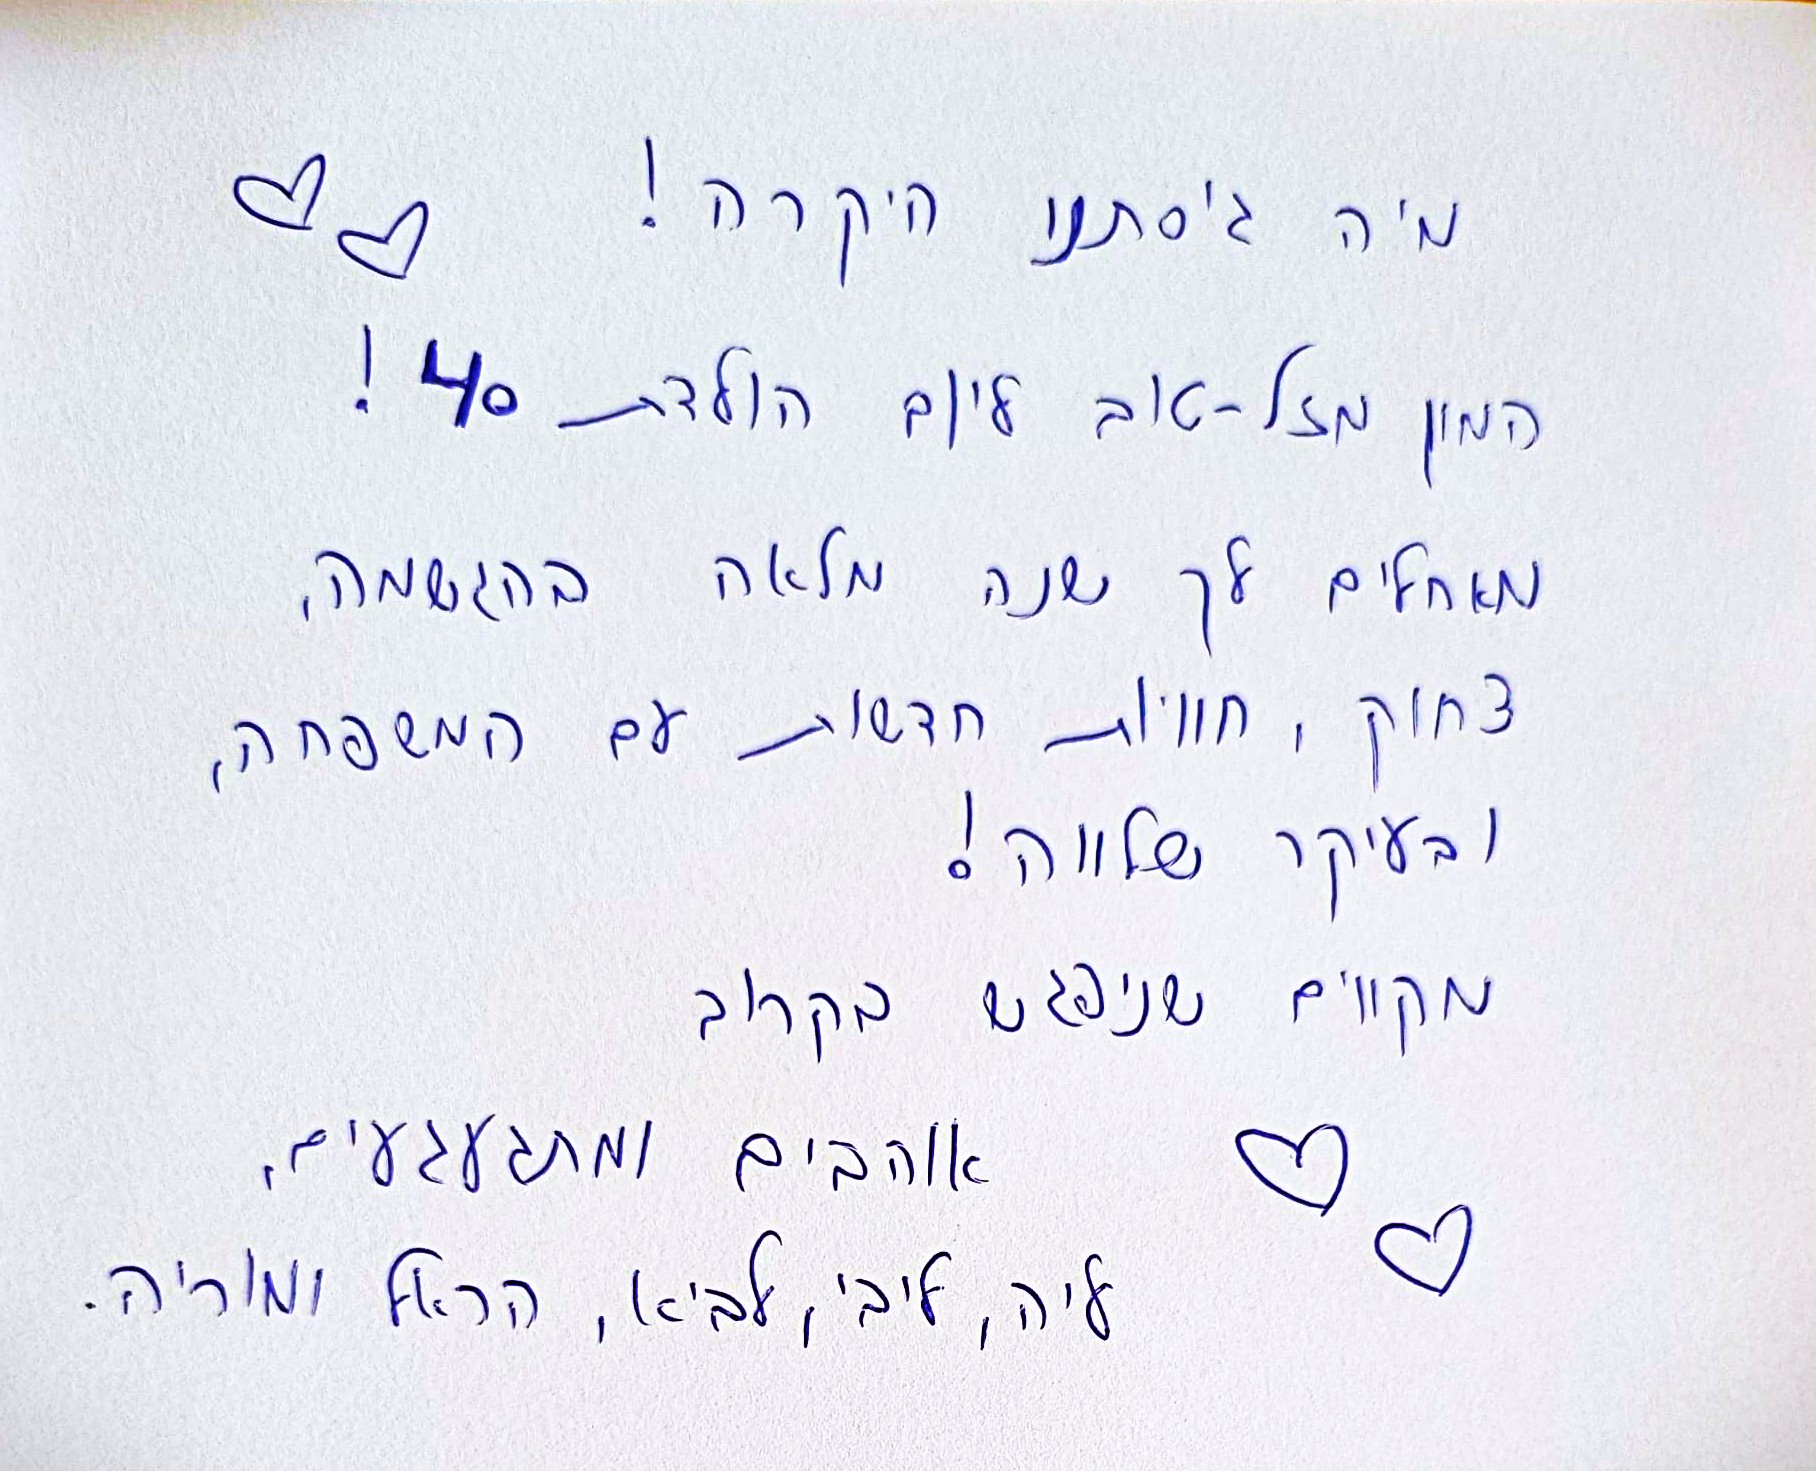 מיה גיסתנו היקרה!
המון מזל-טוב ליום הולדת 40!
מאחלים לך שנה מלאה בהגשמה,
צחוק, חוויות חדשות עם המשפחה,
ובעיקר שלווה!
מקווים שניפגש בקרוב
אוהבים ומתגעגעים,
ליה, ליבי, לביא, הראל ומוריה.